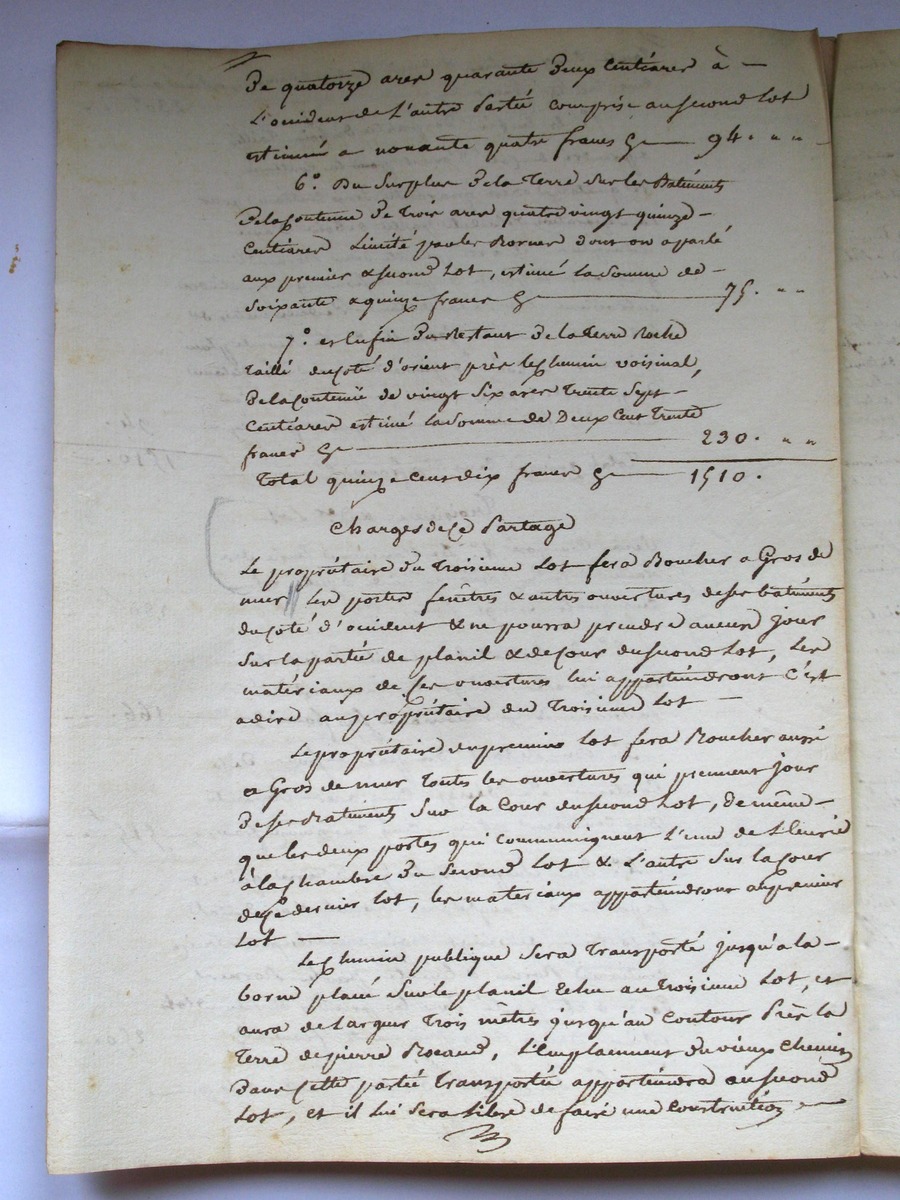 De quatorze ares quarante Deux Centiares à —
L'occident de L'autre Partie comprise au second Lot
estimée a nonante quatre francs — 94. " "
6.° Du Surplus De la Terre Sur les Batiments
De la Contenue De Trois ares quatre vingt quinze —
Centiares Limité par les Bornes dont on a parlé
aux premier & second Lot, estimé la Somme de —
Soixante & quinze francs — 75. " "
7.° et Enfin Du Restant De la Terre Roche
Taillé du Coté d'orient près le Chemin voisinal,
De la Contenue de vingt Six ares Trente Sept —
Centiares estimé la Somme de Deux Cent Trente
francs — 230. " "
Total quinze cent dix francs — 1510.
Charges de Ce Partage
Le propriétaire Du Troisieme Lot fera Boucher a Gros de
mur Les portes fenêtres & autres ouvertures de ses batiments
du coté d'occident & ne pourra prendre aucun jours
Sur la partie de planil & de Cour du second Lot, Les
matériaux de Ses ouvertures lui appartiendront C'est
a dire au propriétaire du Troisieme Lot —
Le propriétaire du premier Lot fera Boucher aussi
a Gros de mur Toutes les ouvertures qui prennent jour
De ses Batiments Sur la Cour du second Lot, De même —
que les deux portes qui communiquent L'une de L'ecurie
à la Chambre Du Second Lot & L'autre Sur la Cour
de Ce dernier Lot, les materiaux appartiendront au premier
Lot —
Le Chemin publique Sera Transporté jusqu'a la —
borne placé Sur le planil Echu au Troisieme Lot, et
aura de Largeur Trois mètres jusqu'au Contour Près la
Terre de pierre, L'Emplacement Du vieux Chemin
Dans Cette partie Transportée appartiendra au second
Lot, et il Lui Sera Libre de faire une Construction —